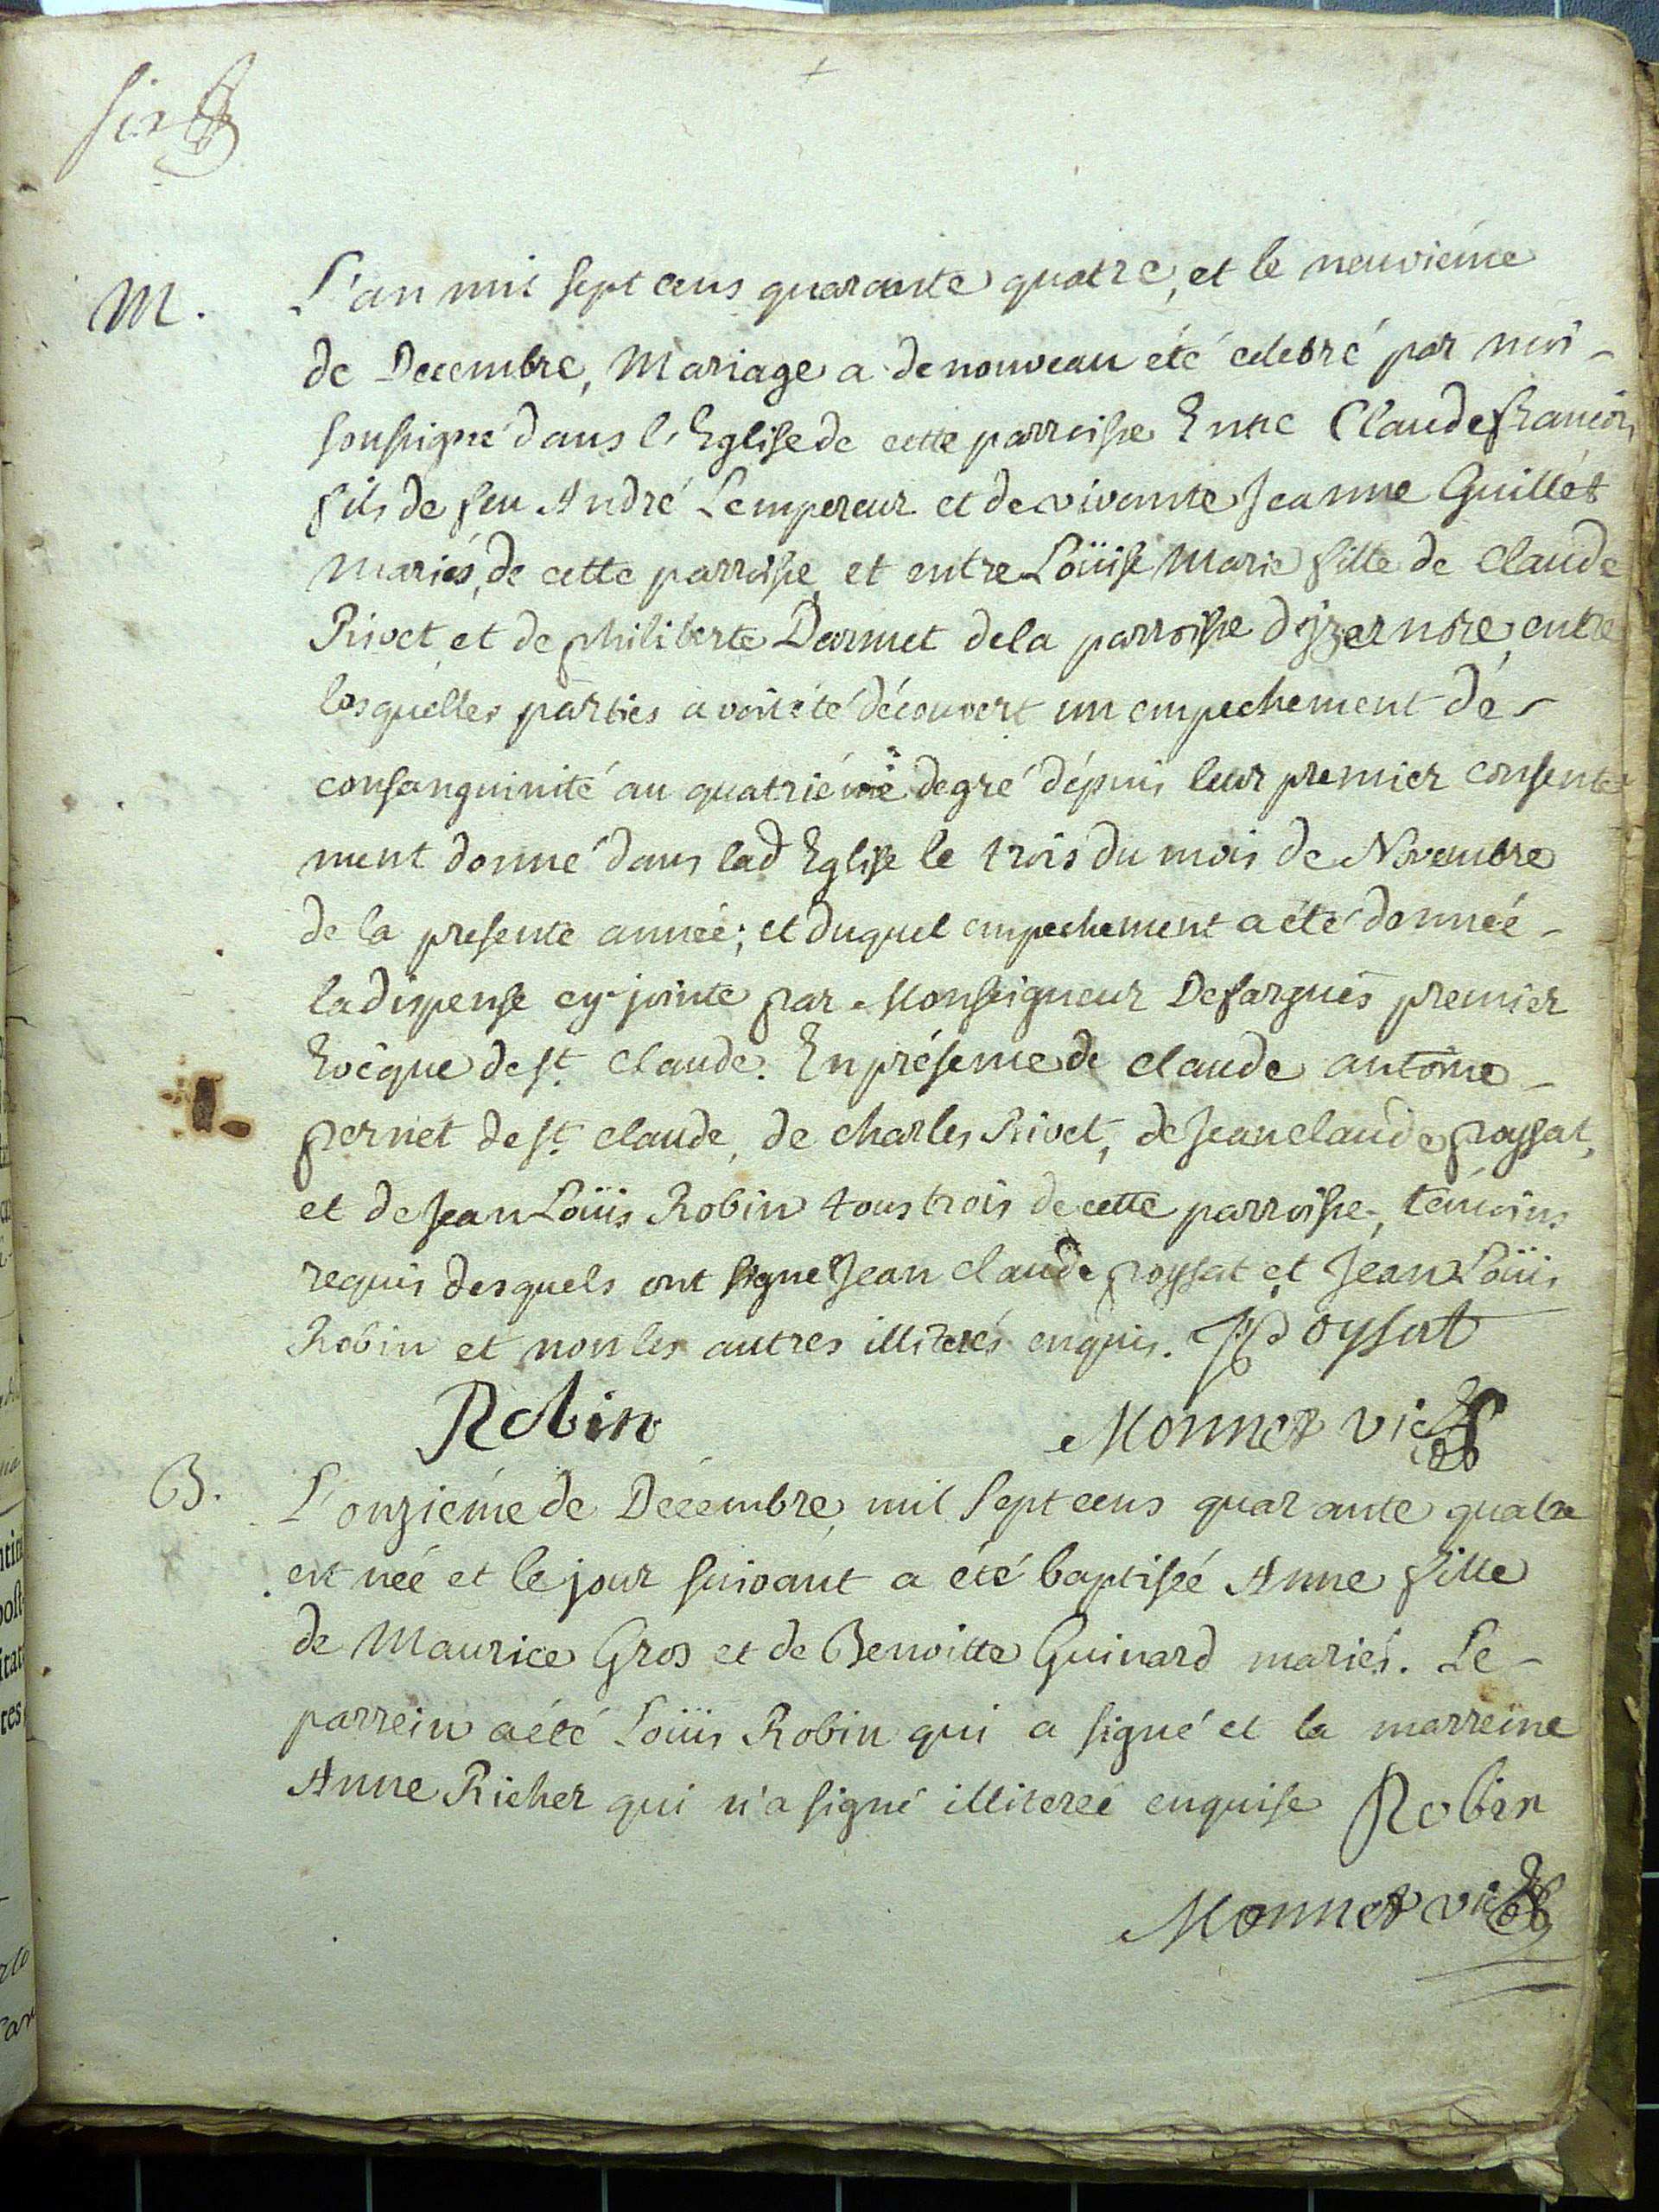 six
M.
L'an mil sept cens quarante quatre, et le neuviéme
de Decembre, Mariage a de nouveau été celebré par moi -
soussigné dans l'Eglise de cette parroisse Entre Claude francois
fils de feu André Lempereur et de vivante Jeanne Guillét
mariés, de cette parroisse, et entre Loüise Marie fille de Claude
Rivet, et de philiberte Darmet de la parroisse d'jzernore, entre
lesquelles parties avoit été découvert un empechement dé -
consanguinité au quatriéme degré dépuis leur premier consente
ment donné dans lad Eglise le trois du mois de Novembre
de la presente année; et duquel empechement a été donnéé -
la dispense cy-jointe par Monseigneur Defargues premier
Evêque de st. Claude. En présence de claude antoine -
pernet de st. claude, de charles Rivet, de Jean claude poysat,
et de Jean Loüis Robin tous trois de cette parroisse, témoins
requis desquels ont signé Jean claude poysat et Jean Loüis
Robin et non les autres illiterés enquis. JCPoysat
Robin Monnet vic
B.
L'onziéme de Décembre mil sept cens quarante quatre
est néé et le jour suivant a été baptiséé Anne fille
de Maurice Gros et de Benoitte Guinard mariés. Le -
parrein a été Loüis Robin qui a signé et la marreine
Anne Richer qui n'a signé illitereé enquise Robin
Monnet vic